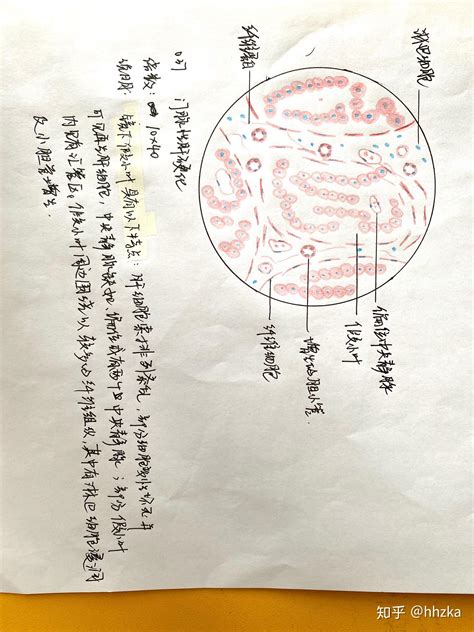 淋巴细胞
纤维组
偏位中央静脉
假小叶
增生的胆小管
纤维细胞
门脉性肝硬化
倍数: 10×40
镜下假小叶具有以下特点: 肝细胞索排列紊乱, 部分细胞变性坏死并
可见再生肝细胞, 中央静脉缺如, 偏位或有两个中央静脉; 部分假小叶
内见有汇管区。假小叶周边围绕以较多的纤维组织, 其中有淋巴细胞浸润
及小胆管增生.
知乎 @hhzka